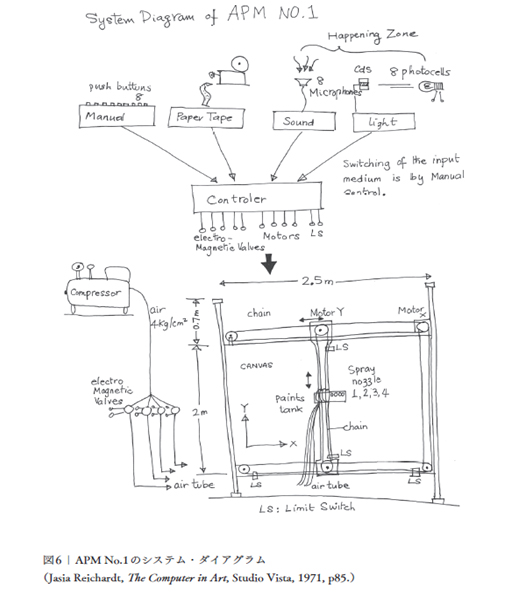 System Diagram of APM NO.1
Happening Zone
push buttons
8
8
Microphones
Cds
8 photocells
Manual
Paper Tape
Sound
Light
Switching of the input
medium is by Manual
control.
Controler
electro-
Magnetic Valves
Motors
LS
Compressor
air
4kg/cm²
2.5m
chain
Motor Y
Motor
X
LS
CANVAS
electro
Magnetic
Valves
2m
Y
X
Paints
tank
Spray
nozzle
1,2,3,4
chain
LS
LS
LS
air tube
air tube
LS: Limit Switch
図6｜APM No.1のシステム・ダイアグラム
(Jasia Reichardt, The Computer in Art, Studio Vista, 1971, p85.)